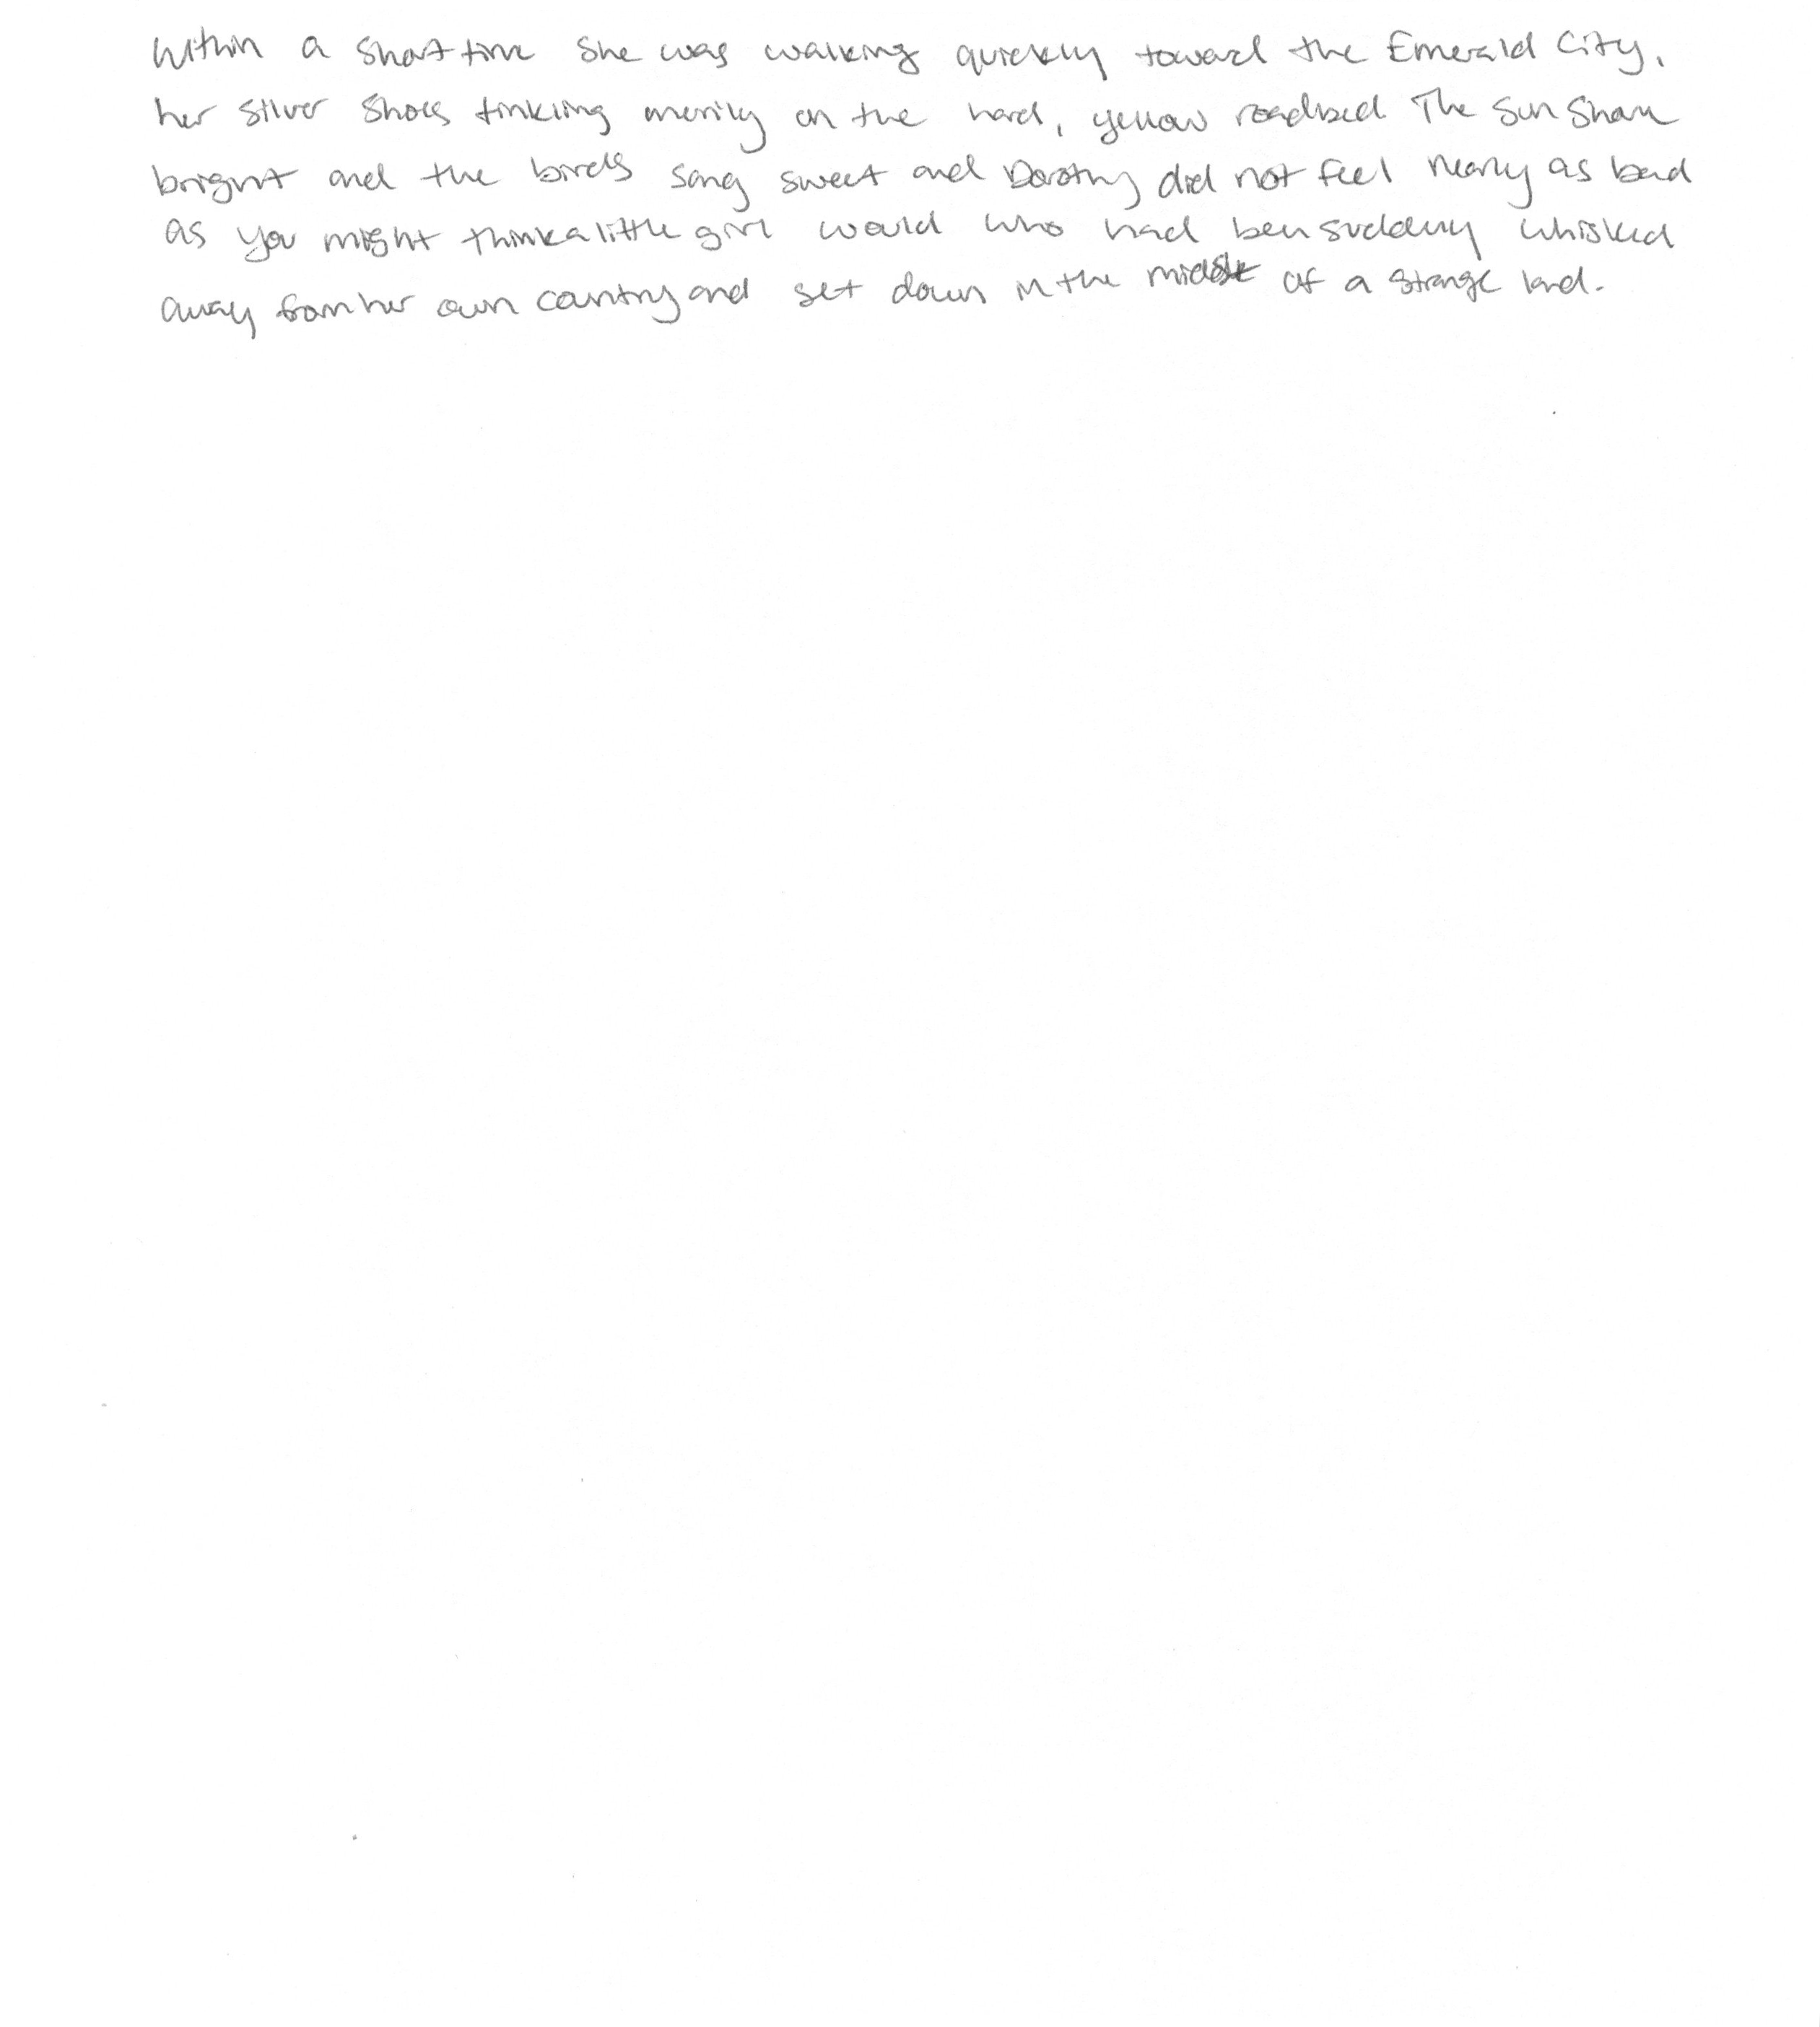 Within a short time she was walking quickly toward the Emerald City,
her silver shoes tinkling merrily on the hard, yellow roadbed. The sun shone
bright and the birds sang sweet and Dorothy did not feel nearly as bad
as you might think a little girl would who had been suddenly whisked
away from her own country and set down in the midst of a strange land.